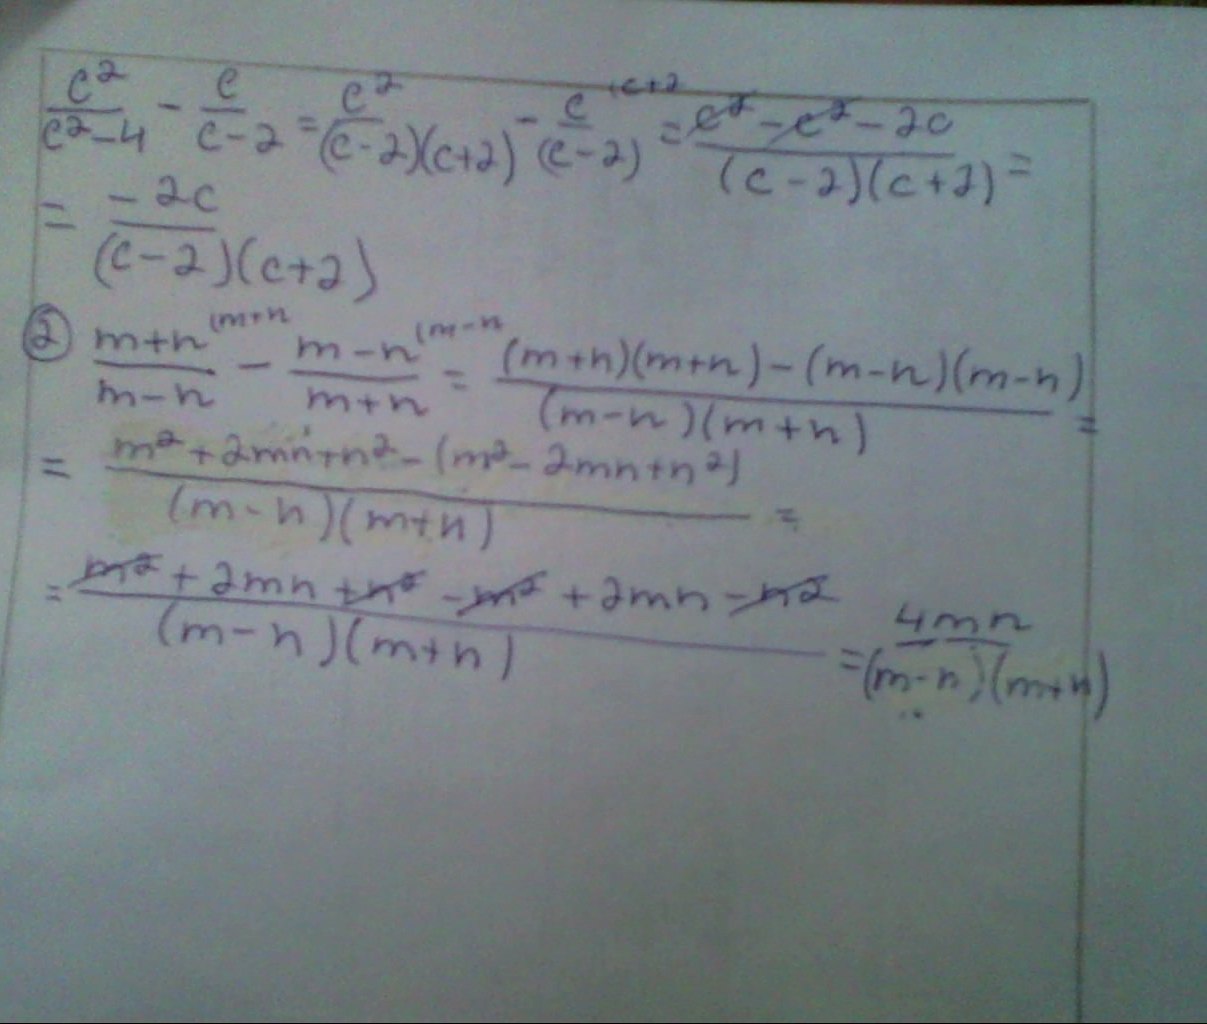 c²/(c²-4) - c/(c-2) = c²/((c-2)(c+2)) - c/(c-2) (c+2 = (c² - c² - 2c)/((c-2)(c+2)) =
= -2c/((c-2)(c+2))
② (m+n)/(m-n) (m+n - (m-n)/(m+n) (m-n = ((m+n)(m+n) - (m-n)(m-n))/((m-n)(m+n)) =
= (m² + 2mn + n² - (m² - 2mn + n²))/((m-n)(m+n)) =
= (m² + 2mn + n² - m² + 2mn - n²)/((m-n)(m+n)) = 4mn/((m-n)(m+n))